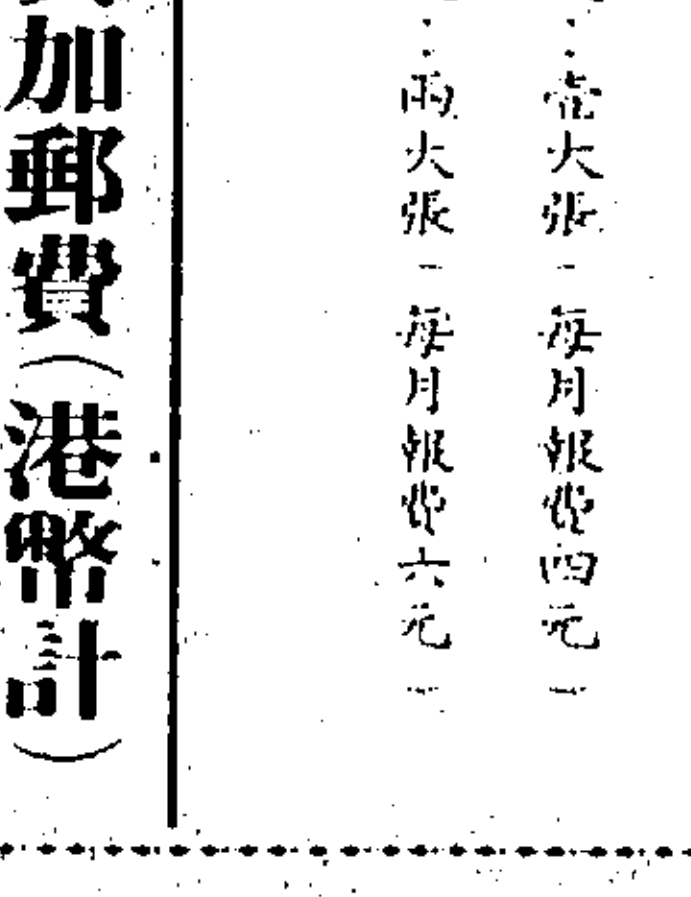 ：壹大張（每月報費四元）
：兩大張（每月報費六元）
加郵費（港幣計）